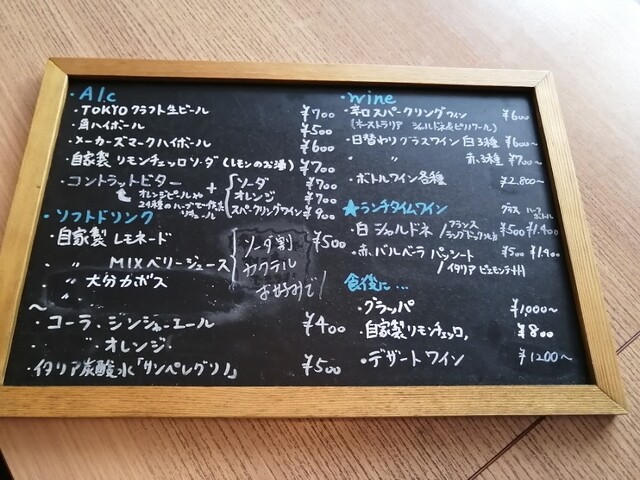 ・Alc
・TOKYOクラフト生ビール ¥700
・角ハイボール ¥500
・メーカーズマークハイボール ¥600
・自家製 リモンチェッロソーダ (レモンのお酒) ¥700
・コントラットビター + ソーダ ¥700
オレンジピールや オレンジ ¥700
24種のハーブで作った スパークリングワイン ¥900
リキュール
・ソフトドリンク
・自家製 レモネード ¥500
〃 MIXベリージュース ソーダ割
〃 大分カボス カクテル
〃 お好みで!
〜
・コーラ、ジンジャーエール ¥400
〃 オレンジ
・イタリア炭酸水「サンペレグリノ」 ¥500
・wine
・辛口スパークリングワイン ¥600
(オーストラリア シャルドネ&ピノノワール)
・日替わりグラスワイン 白3種 ¥600〜
〃 赤3種 ¥700〜
・ボトルワイン各種 ¥2,800〜
★ランチタイムワイン グラス ハーフボトル
・白 シャルドネ / フランス ラングドックルション ¥500 ¥1,400
・赤 バルベーラ パッシート ¥500 ¥1,400
/ イタリア ピエモンテ州
食後に…
・グラッパ ¥1,000〜
・自家製リモンチェッロ, ¥800
・デザートワイン ¥1200〜